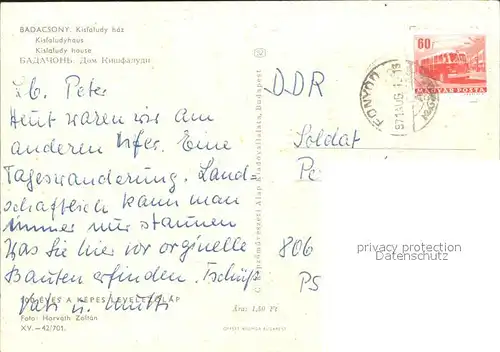 BADACSONY: Kisfaludy ház
Kisfaludyhaus
Kisfaludy house
БАДАЧОНЬ: Дом Кишфалуди
Lb. Peter
Heut waren wir am
anderen Ufer. Eine
Tageswanderung. Land-
schaftlich kann man
immer nur staunen
Was Sie hier vor orginelle
Bauten erfinden. Tschüß
Vati u. Mutti
100 ÉVES A KÉPES LEVELEZŐLAP
Foto: Horváth Zoltán
XV.-42/701.
Ára: 1,50 Ft
OFFSET NYOMDA BUDAPEST
Képzőművészeti Alap Kiadóvállalata, Budapest
DDR
Soldat
Pe
806
PS
60f
MAGYAR POSTA
FONYÓD
971 AUG. 1
privacy protection
Datenschutz